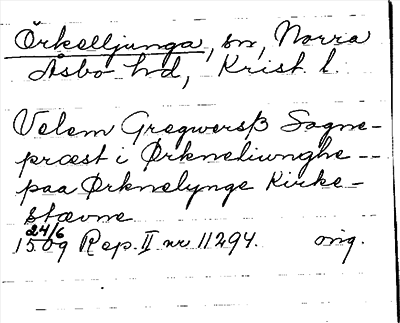 Örkelljunga, sn, Norra
Åsbo hd, Krist. l.
Velem Gregwersß Sogne-
præst i Ørkneliunghe --
paa Ørknelynge Kirke-
stævne
24/6
1509 Rep. II nr 11294. orig.